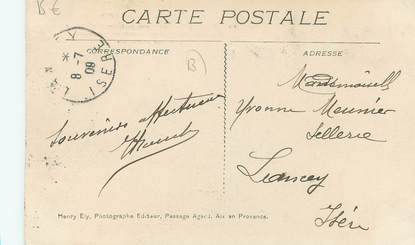 B€
CARTE POSTALE
CORRESPONDANCE
ADRESSE
8-7
09
ISERE
B
Mademoiselle
Yvonne Meunier
Sellerie
Lancey
Isère
Souvenirs affectueux
Henry Ely, Photographe Editeur, Passage Agard, Aix en Provence.